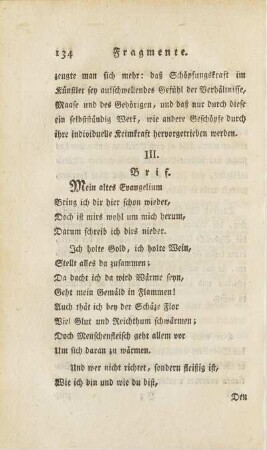 134 Fragmente.
zeugte man sich mehr: daß Schöpfungskraft im
Künstler sey aufschwellendes Gefühl der Verhältnisse,
Maase und des Gehörigen, und daß nur durch diese
ein selbstständig Werk, wie andere Geschöpfe durch
ihre individuelle Keimkraft hervorgetrieben werden.
III.
Brif.
Mein altes Evangelium
Bring ich dir hier schon wieder,
Doch ist mirs wohl um mich herum,
Darum schreib ich dirs nieder.
Ich holte Gold, ich holte Wein,
Stellt alles da zusammen;
Da dacht ich da wird Wärme seyn,
Geht mein Gemäld in Flammen!
Auch thät ich bey der Schäze Flor
Viel Glut und Reichthum schwärmen;
Doch Menschenfleisch geht allem vor
Um sich daran zu wärmen.
Und wer nicht richtet, sondern fleisig ist,
Wie ich bin und wie du bist,
Den